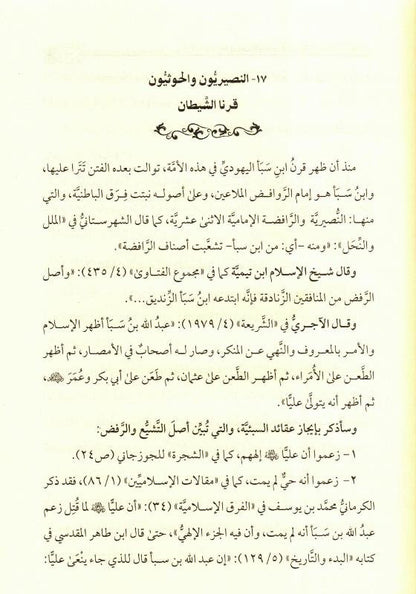 ١٧- النصيريُّون والحوثيُّون
قرنا الشَّيطان
منذ أن ظهر قرنُ ابنِ سَبَأ اليهوديِّ في هذه الأمَّة، توالت بعده الفتن تَتْرا عليها،
وابنُ سَبَأ هو إمام الرَّوافض الملاعين، وعلى أصولـه نبتت فِرَق الباطنيَّة، والتي
منهـا: النُّصيريَّة والرَّافضة الإماميَّة الاثنى عشريَّة، كما قال الشهرستانيُّ في «الملل
والنِّحَل»: «ومنه -أي: من ابن سبأ- تشعَّبت أصناف الرَّافضة».
وقال شيخ الإسلام ابن تيميَّة كما في «مجموع الفتاوى» (٤/ ٤٣٥): «وأصل
الرَّفض من المنافقين الزَّنادقة فإنَّه ابتدعه ابنُ سَبَأ الزِّنديق...».
وقـال الآجـريُّ في «الشَّريعة» (٤/ ١٩٧٩): «عبدُ الله بنُ سَبَأ أظهر الإسلام
والأمـر بالمعروف والنَّهي عن المنكر، وصار لـه أصحابٌ في الأمصار، ثم أظهر
الطَّعـن علىٰ الأُمَراء، ثم أظهـر الطَّعن علىٰ عثمان، ثم طَعَن علىٰ أبي بكر وعُمَرَ ﷺ،
ثم أظهر أنه يتولَّى عليًّا».
وسأذكر بإيجاز عقائد السبئيَّة، والتي تُبيِّن أصلَ التَّشيُّع والرَّفض:
١- زعموا أن عليًّا إلههم، كما في «الشجرة» للجوزجاني (ص٢٤).
٢- زعموا أنه حيٌّ لم يمت، كما في «مقالات الإسلاميِّين» (١/ ٨٦)، فقد ذكر
الكرمانيُّ محمَّد بن يوسف في «الفرق الإسلاميَّة» (٣٤): «أن عليًّا لما قُتِل زعم
عبدُ الله بنُ سَبَأ أنه لم يمت، وأن فيه الجزء الإلهيَّ»، حتىٰ قال ابن طاهر المقدسي في
كتابه «البدء والتَّاريخ» (٥/ ١٢٩): «إن عبد الله بن سبأ قال للذي جاء ينْعَىٰ عليًّا: